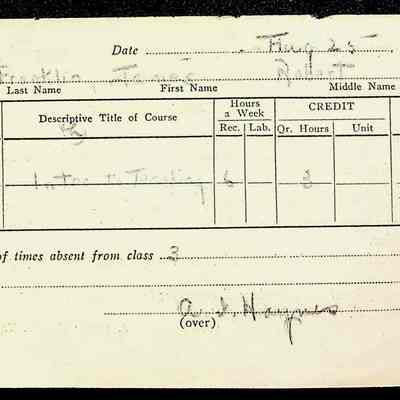 Date Aug 25
Franklin, James Robert
Last Name First Name Middle Name
Descriptive Title of Course Hours a Week CREDIT
Rec. Lab. Qr. Hours Unit
Intro to Teaching 6 3
of times absent from class 3
Haynes
(over)